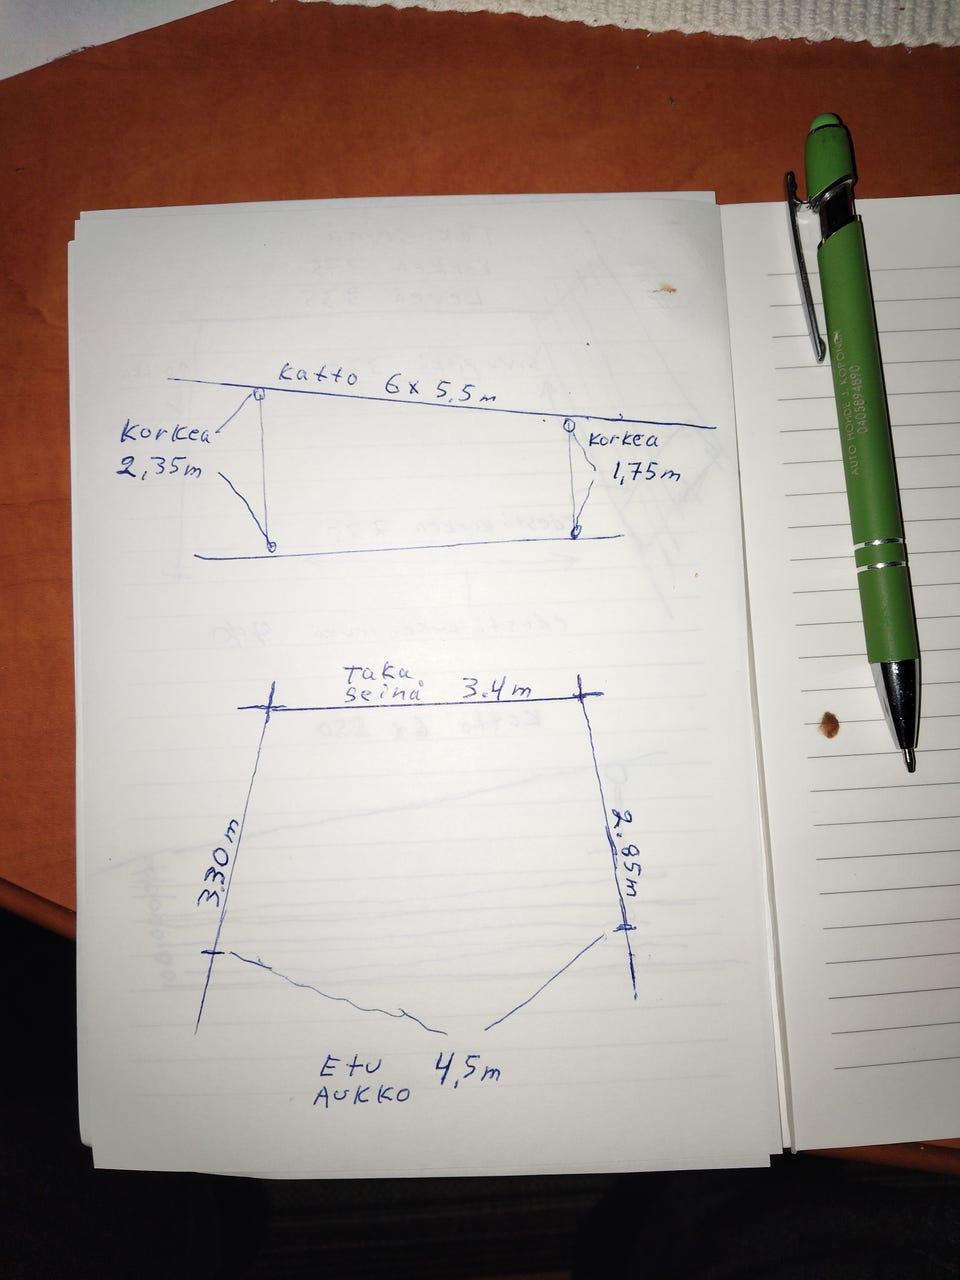 Katto 6x5,5m
Korkea
2,35m
Korkea
1,75m
Taka
Seinä 3.4m
3.30m
2.85m
Etu 4,5m
AUKKO
AUTO HOHDE J. KOPONEN
0405894890